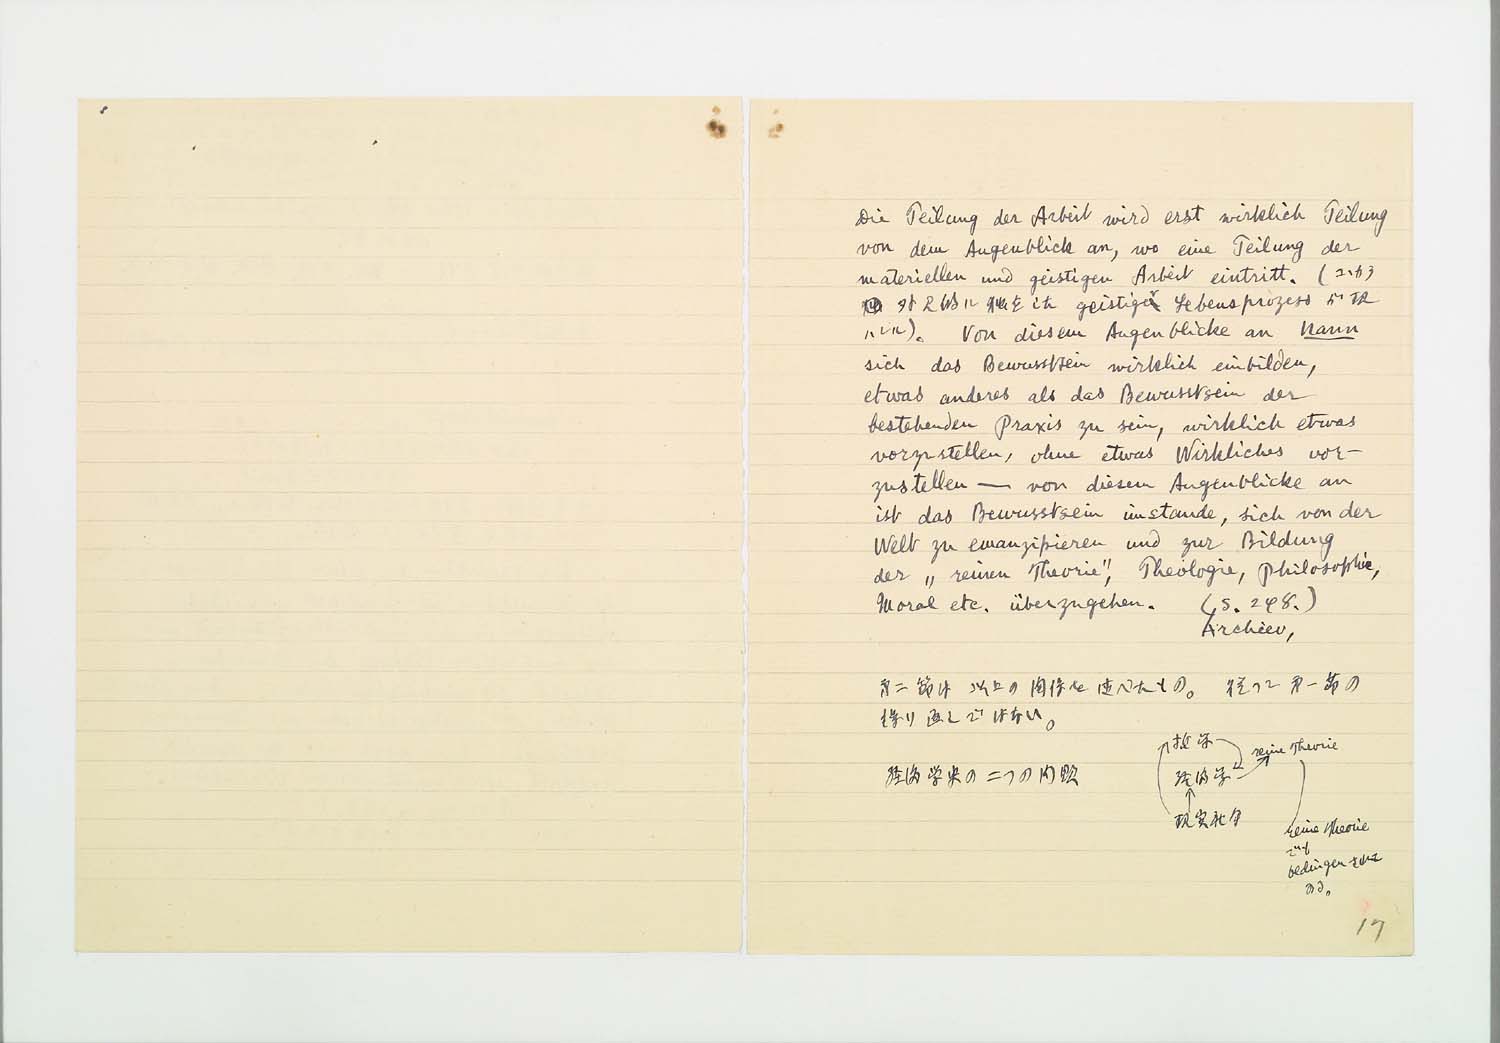 Die Teilung der Arbeit wird erst wirklich Teilung
von dem Augenblick an, wo eine Teilung der
materiellen und geistigen Arbeit eintritt. (
geistige Lebensprozess
). Von diesem Augenblicke an kann
sich das Bewusstsein wirklich einbilden,
etwas anderes als das Bewusstsein der
bestehenden Praxis zu sein, wirklich etwas
vorzustellen, ohne etwas Wirkliches vor-
zustellen — von diesem Augenblicke an
ist das Bewusstsein imstande, sich von der
Welt zu emanzipieren und zur Bildung
der „reinen Theorie", Theologie, Philosophie,
Moral etc. überzugehen. (S. 248.)
Archiev,
第二節は 以上の関係を述べたもの。 従つて第一節の
繰り返しではない。
経済学史の二つの問題
哲学
reine Theorie
経済学
現実社会
reine Theorie
でも
bedingen され
ある。
17